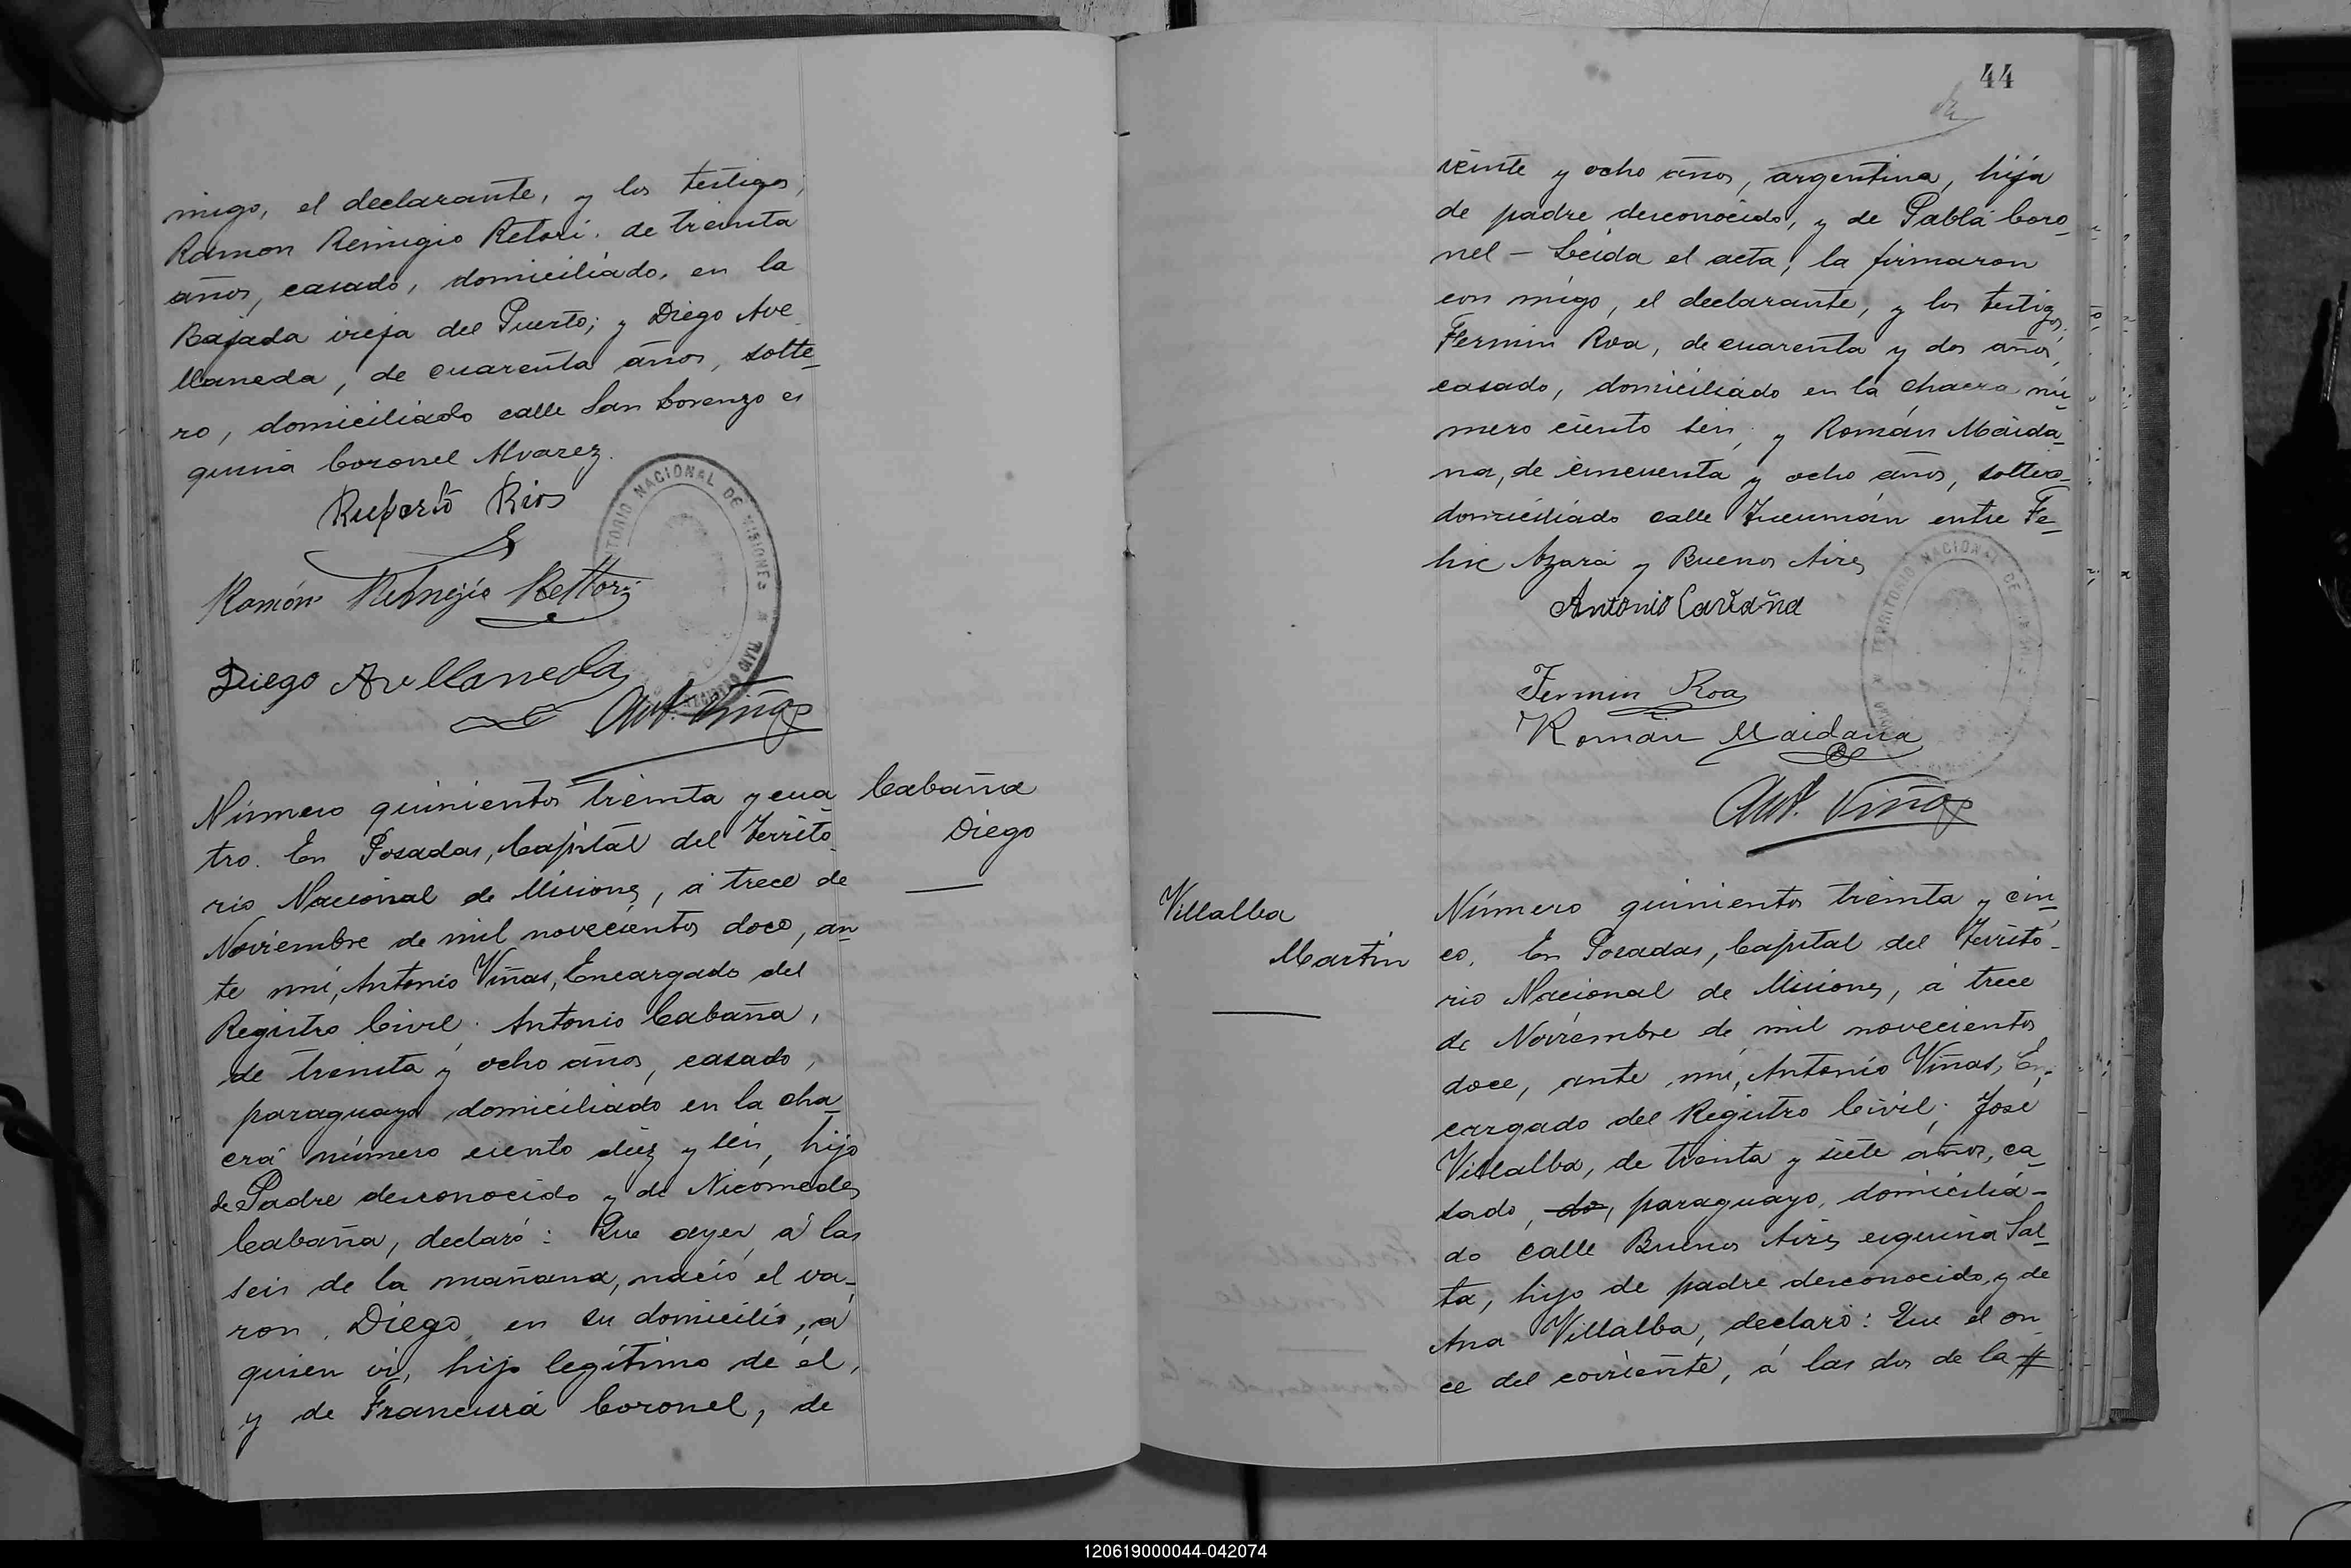 migo, el declarante, y los testigos,
Ramon Remigio Retori. de treinta
años, casado, domiciliado, en la
Bajada vieja del Puerto; y Diego Ave
llaneda, de cuarenta años, solte-
ro, domiciliado calle San Lorenzo es
quina Coronel Alvarez.
Ruperto Rios
Ramón Remigio Rettori
Diego Avellaneda
Ant. Viñas
TERRITORIO NACIONAL DE MISIONES
Número quinientos treinta y cua
tro. En Posadas, Capital del Territo-
rio Nacional de Misiones, á trece de
Noviembre de mil novecientos doce, an-
te mí, Antonio Viñas, Encargado del
Registro Civil; Antonio Cabaña,
de treinta y ocho años, casado,
paraguayo domiciliado en la cha-
cra número ciento diez y seis, hijo
de Padre desconocido y de Nicomedes
Cabaña, declaró: Que ayer á las
seis de la mañana, nació el va-
ron, Diego, en su domicilio, á
quien vi, hijo legítimo de él,
y de Francisca Coronel, de
Cabaña
Diego
44
veinte y ocho años, argentina, hija
de padre desconocido, y de Pabla Coro-
nel - Leida el acta, la firmaron
con migo, el declarante, y los testigos,
Fermin Roa, de cuarenta y dos años,
casado, domiciliado en la chacra nú-
mero ciento seis; y Román Maida-
na, de cincuenta y ocho años, soltero-
domiciliado calle Tucumán entre Fe-
liz Azara y Buenos Aires
Antonio Cavaña
Fermin Roa
Román Maidana
Ant. Viñas
TERRITORIO NACIONAL DE MISIONES
Villalba
Martin
Número quinientos treinta y cin-
co. En Posadas, Capital del Territo-
rio Nacional de Misiones, á trece
de Noviembre de mil novecientos
doce, ante mí, Antonio Viñas, En-
cargado del Registro Civil; José
Villalba, de treinta y siete años, ca-
sado, do, paraguayo, domicilia-
do calle Buenos Aires esquina Sal-
ta, hijo de padre desconocido, y de
Ana Villalba, declaró: Que el on
ce del corriente, á las dos de la #
120619000044-042074